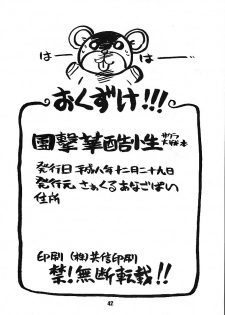 は―
は―
おくずけ!!!
国撃華酷性 サクラ大戦本
発行日 平成八年十二月二十九日
発行元 さぁくるあなごぱい
住所
印刷 (株)共信印刷
禁!無断転載!!
42